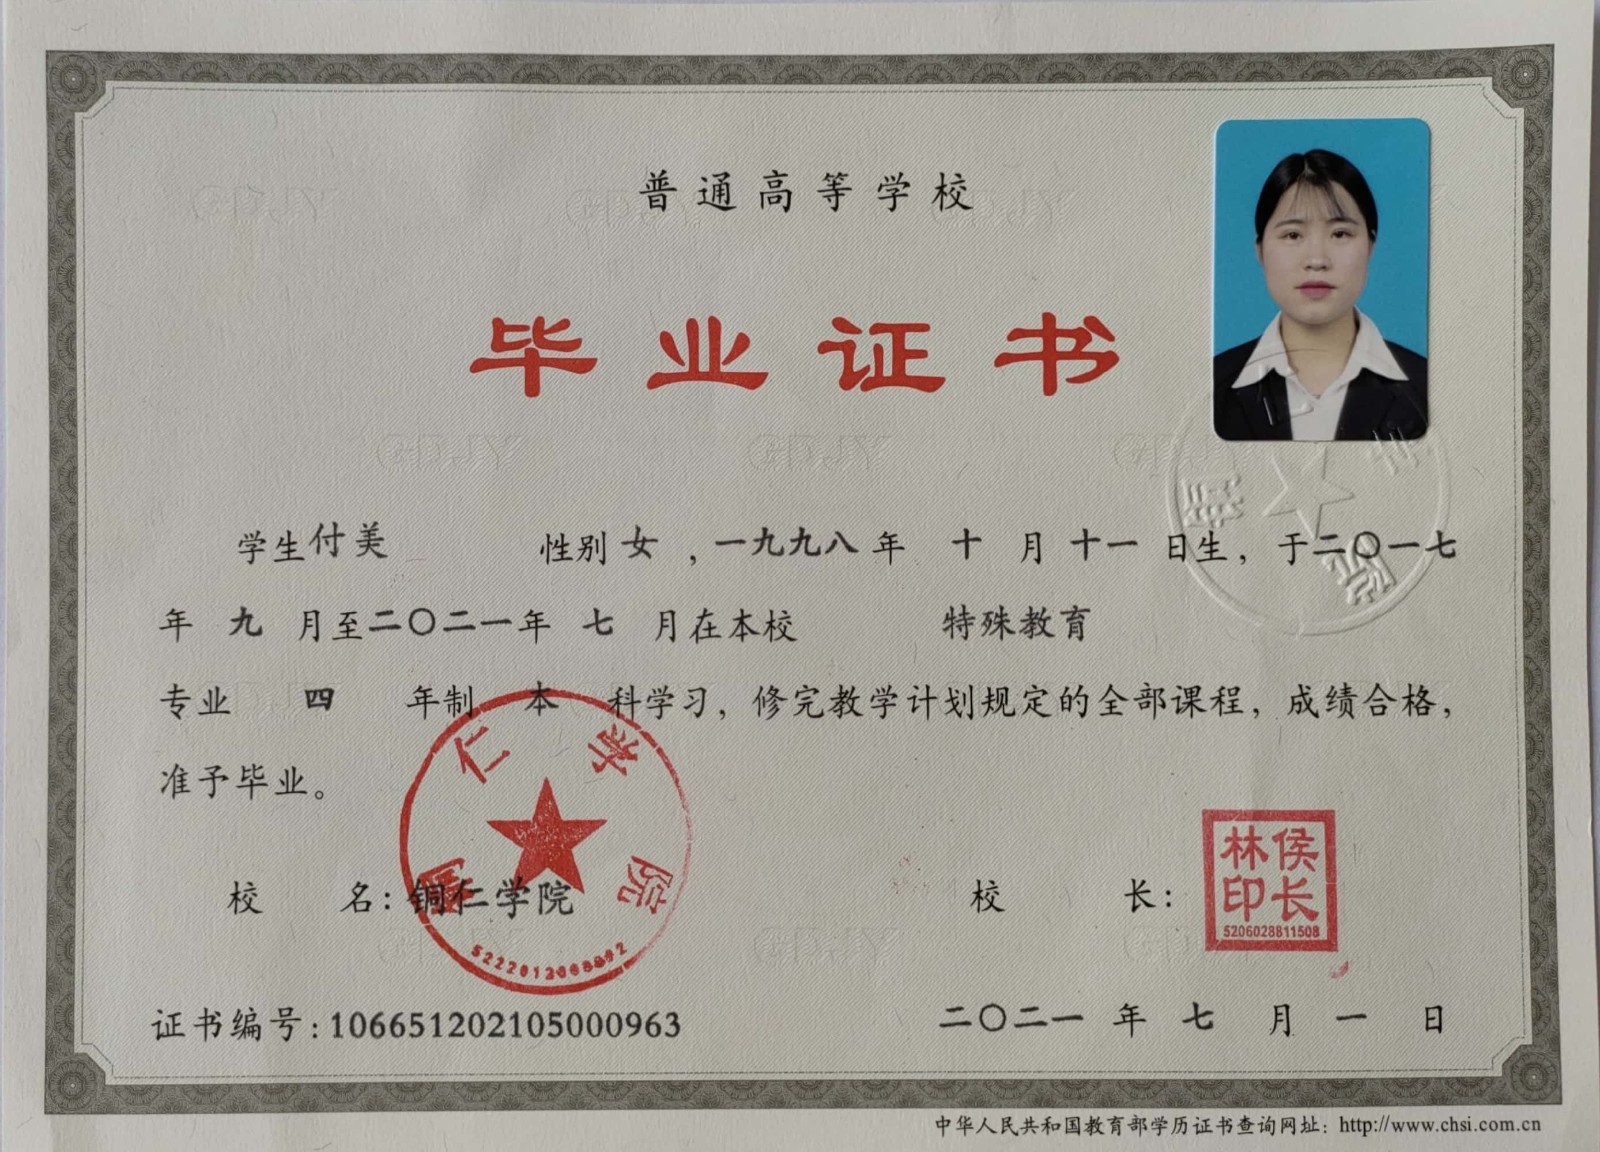 普通高等学校
毕业证书
学生 付美 性别 女 ，一九九八 年 十 月 十一 日生，于二〇一七
年 九 月至二〇二一年 七 月在本校 特殊教育
专业 四 年制 本 科学习，修完教学计划规定的全部课程，成绩合格，
准予毕业。
校 名：铜仁学院
校 长：
侯长林印
5206028811508
铜仁学院
证书编号：106651202105000963
二〇二一 年 七 月 一 日
中华人民共和国教育部学历证书查询网址：http://www.chsi.com.cn